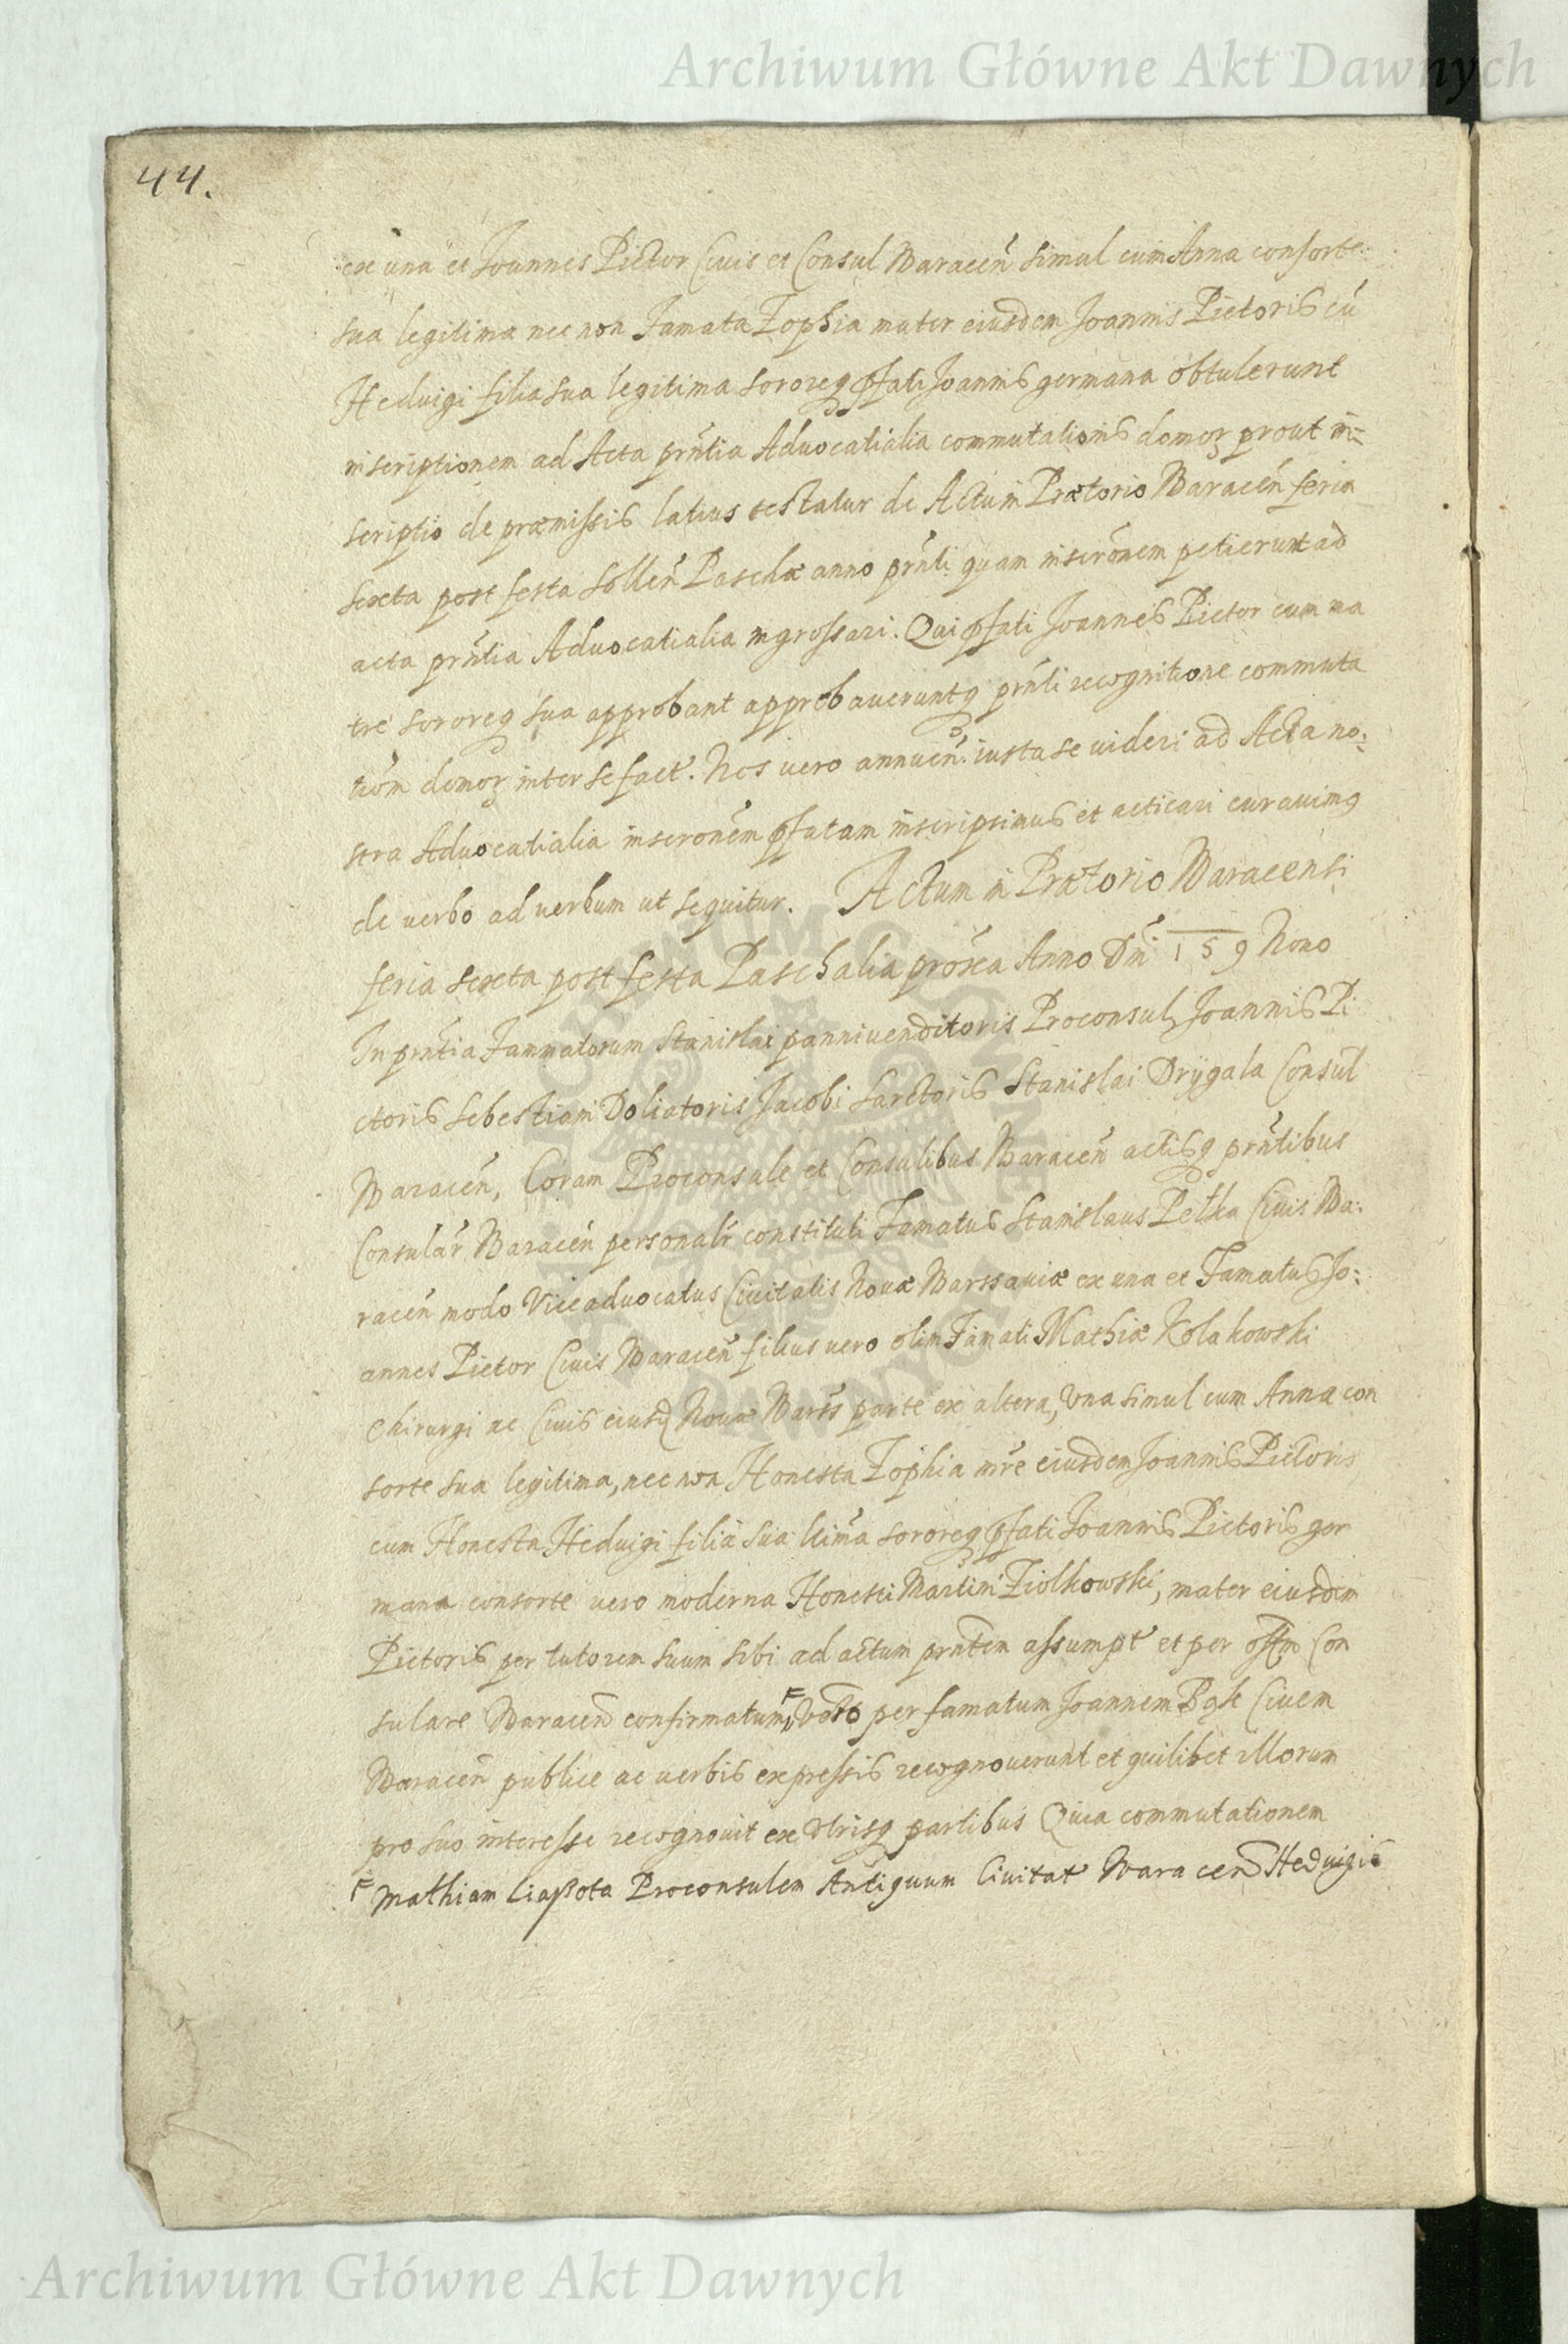 Archiwum Główne Akt Dawnych
44.
ex una et Joannes Pictor Ciuis et Consul Waracen̄ simul cum Anna consorte
sua legitima nec non Famata Zophia mater eiusdem Joannis Pictoris cū
Heduigi filia sua legitima sororeq pfati Joannis germana obtulerunt
inscriptionem ad Acta prn̄tia Aduocatialia commutationis domor prout in=
scriptio de præmissis latius testatur de Actu in Prætorio Waracen̄ feria
sexta post festa sollen̄ Paschæ anno prn̄ti quam inscrōnem petierunt ad
acta prn̄tia Aduocatialia ingrossari. Qui pfati Joannes Pictor cum ma
tre sororeq sua approbant approbaueruntq prn̄ti recognitione commuta
tiōm domor inter se fact. Nos uero annuen̄. iusta se uideri ad Acta no:
stra Aduocatialia inscrōnem pfatam inscripsimus et acticari curauimq
de uerbo ad uerbum ut sequitur. Actum in Prætorio Waracensi
feria sexta post festa Paschalia prox̄a Anno Dn̄i 159 Nono
In prn̄tia Fammatorum Stanislai panniuenditoris Proconsul, Joannis Pi
ctoris Sebestiani Doliatoris Jacobi Sarctoris Stanislai Drÿgala Consul
Waracen̄, Coram Proconsule et Consulibus Waracen̄ actisq prn̄tibus
Consular̄ Waracen̄ personalr̄ constituti Famatus Stanislaus Pełka Ciuis Wa:
racen̄ modo Viceaduocatus Ciuitatis Nouæ Warssauiæ ex una et Famatus Jo:
annes Pictor Ciuis Waracen̄ filius uero olim Famati Mathiæ Kolakowski
Chirurgi ac Ciuis eiusd Nouæ Wars̄ parte ex altera, Vna simul cum Anna con
sorte sua legitima, nec non Honesta Zophia mr̄e eiusdem Joannis Pictoris
cum Honesta Heduigi filia sua ltim̄a sororeq pfati Joannis Pictoris ger
mana consorte uero moderna Honesti Martini Ziolkowski, mater eiusdem
Pictoris per tutorem suum sibi ad actum prn̄tem assumpt et per offm̄ Con
sulare Waracen̄ confirmatum, F per famatum Joannem Ciuem
Waracen̄ publice ac uerbis expressis recognouerunt et quilibet illorum
pro suo interesse recognouit ex Vtrisq partibus Quia commutationem
F Mathiam Liassota Proconsulem Antiquum Ciuitat Waracen̄ Heduigis
Archiwum Główne Akt Dawnych